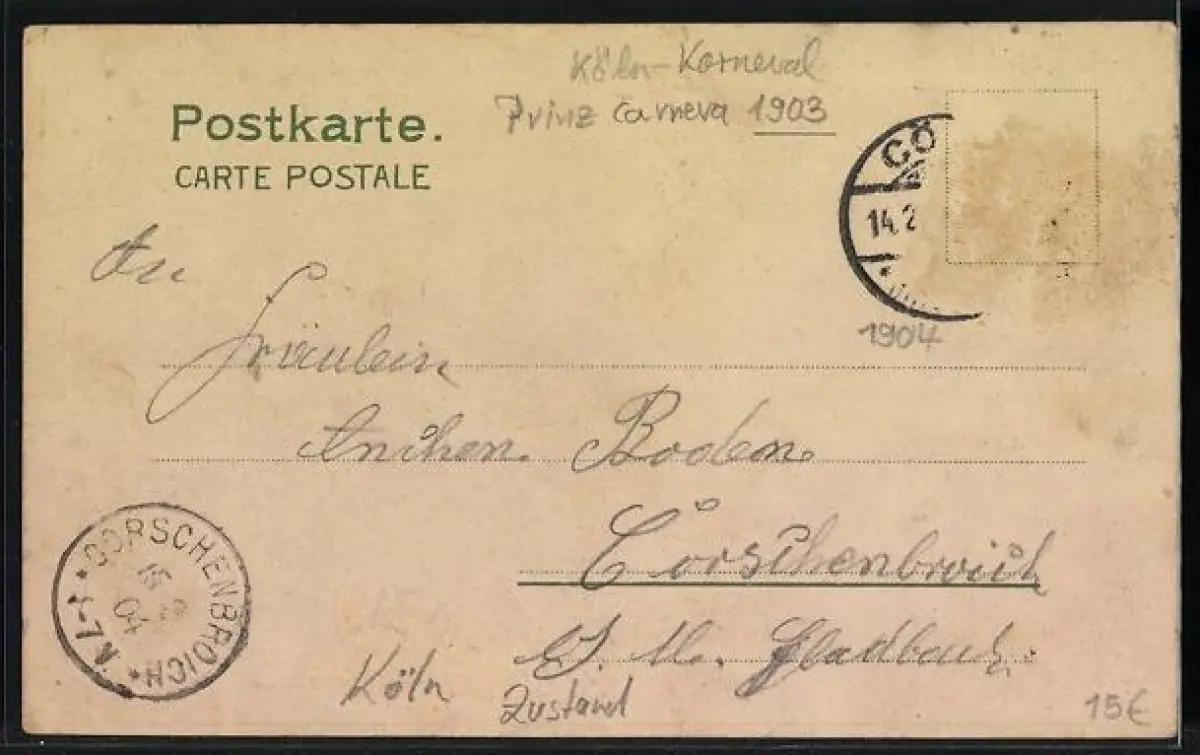 Köln-Korneval
Prinz Carneva 1903
Postkarte.
CARTE POSTALE
CÖ
14.2
1904
An
Fräulein
Anchen Boden
Corschenbroich
M. Gladbach.
CORSCHENBROICH
15 2
04
7-8 N
Köln
Zustand
15€